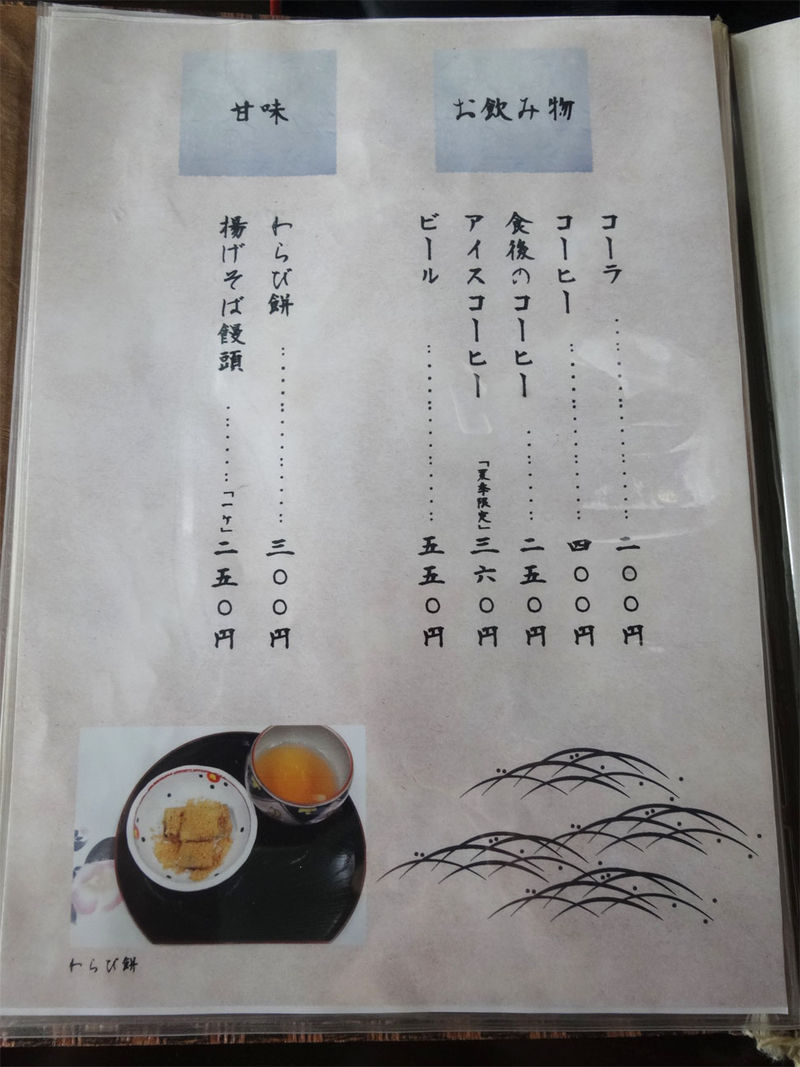 お飲み物
コーラ ………………… 二〇〇円
コーヒー ………………… 四〇〇円
食後のコーヒー ………… 二五〇円
アイスコーヒー 「夏季限定」 三六〇円
ビール ………………… 五五〇円
甘味
わらび餅 ………………… 三〇〇円
揚げそば饅頭 ………「一ヶ」二五〇円
わらび餅